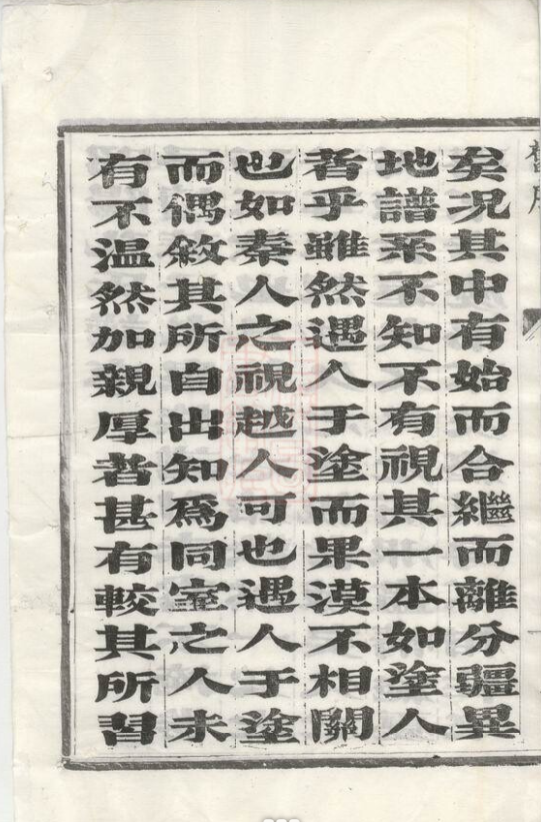 舊序
矣况其中有始而合繼而離分疆異
地譜系不知不有視其一本如塗人
者乎雖然遇人于塗而果漠不相關
也如秦人之視越人可也遇人于塗
而偶敘其所自出知爲同室之人未
有不温然加親厚者甚有較其所習